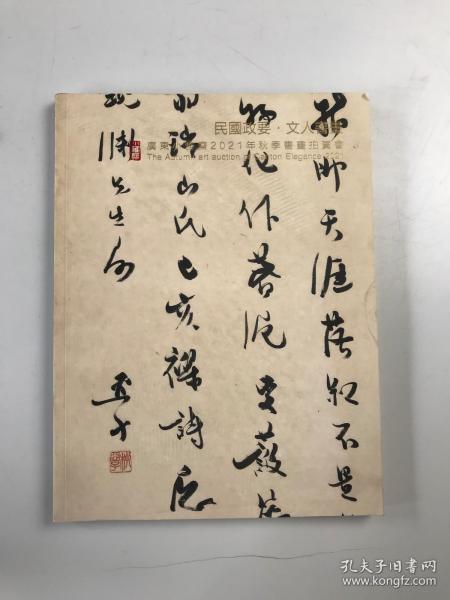 民國政要·文人
廣東 2021年秋季書畫拍賣會
The Autumn art auction of Canton Elegance 2021
指即天涯落紅不是
物化作春泥更護花
羽琌山民己亥襍詩
先生
孔夫子旧书网
www.kongfz.com